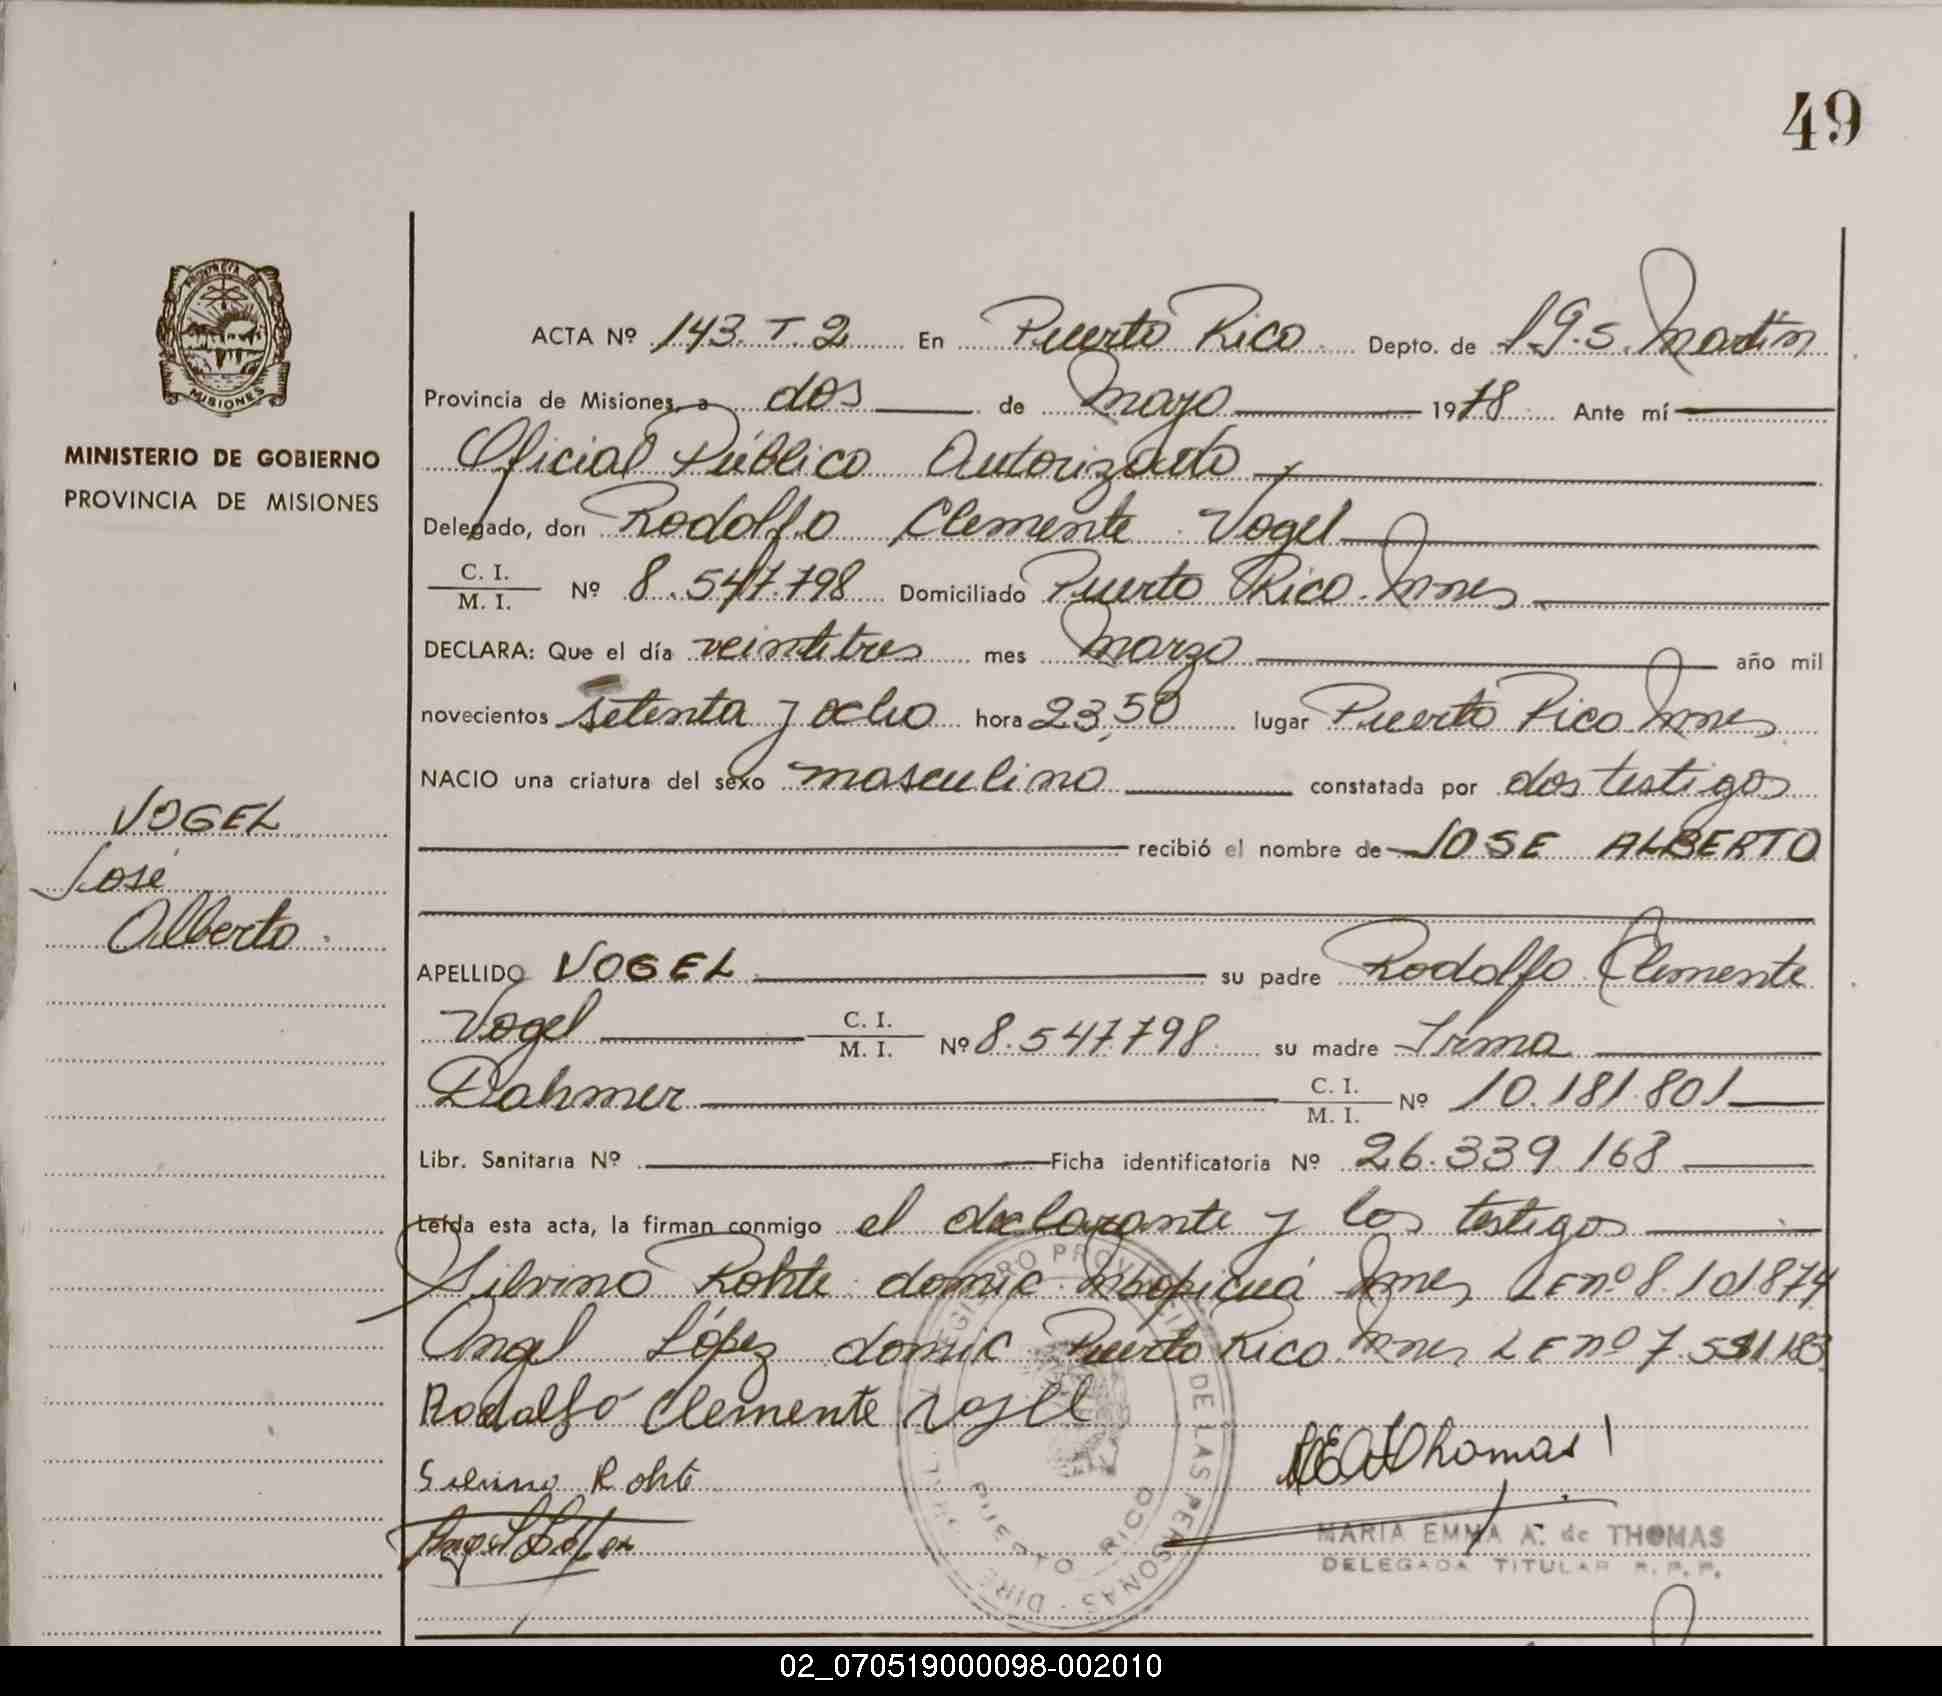 49
PROVINCIA DE
MISIONES
MINISTERIO DE GOBIERNO
PROVINCIA DE MISIONES
VOGEL
José
Alberto.
ACTA Nº 143. T. 2. En Puerto Rico Depto. de Martín
Provincia de Misiones, a dos de Mayo 1978 Ante mí
Oficial Público Autorizado
Delegado, don Rodolfo Clemente Vogel
C. I.
M. I. Nº 8.547.798 Domiciliado Puerto Rico. Mnes
DECLARA: Que el día veintitres mes Marzo año mil
novecientos setenta y ocho hora 23,50 lugar Puerto Rico Mnes
NACIO una criatura del sexo masculino constatada por dos testigos
recibió el nombre de JOSE ALBERTO
APELLIDO VOGEL su padre Rodolfo Clemente
Vogel C. I.
M. I. Nº 8.547.798 su madre Irma
Dahmer C. I.
M. I. Nº 10.181.801
Libr. Sanitaria Nº Ficha identificatoria Nº 26.339.168
Leída esta acta, la firman conmigo el declarante y los testigos
Silvino Rohte domic. Mnes LE nº 8.101874
Angel López domic Puerto Rico Mnes LE nº
Rodolfo Clemente Vogel
Silvino Rohte
Angel López
Thomas
MARIA EMMA A. de THOMAS
DELEGADA TITULAR R. P. P.
REGISTRO PROVINCIAL DE LAS PERSONAS
PUERTO RICO
02_070519000098-002010